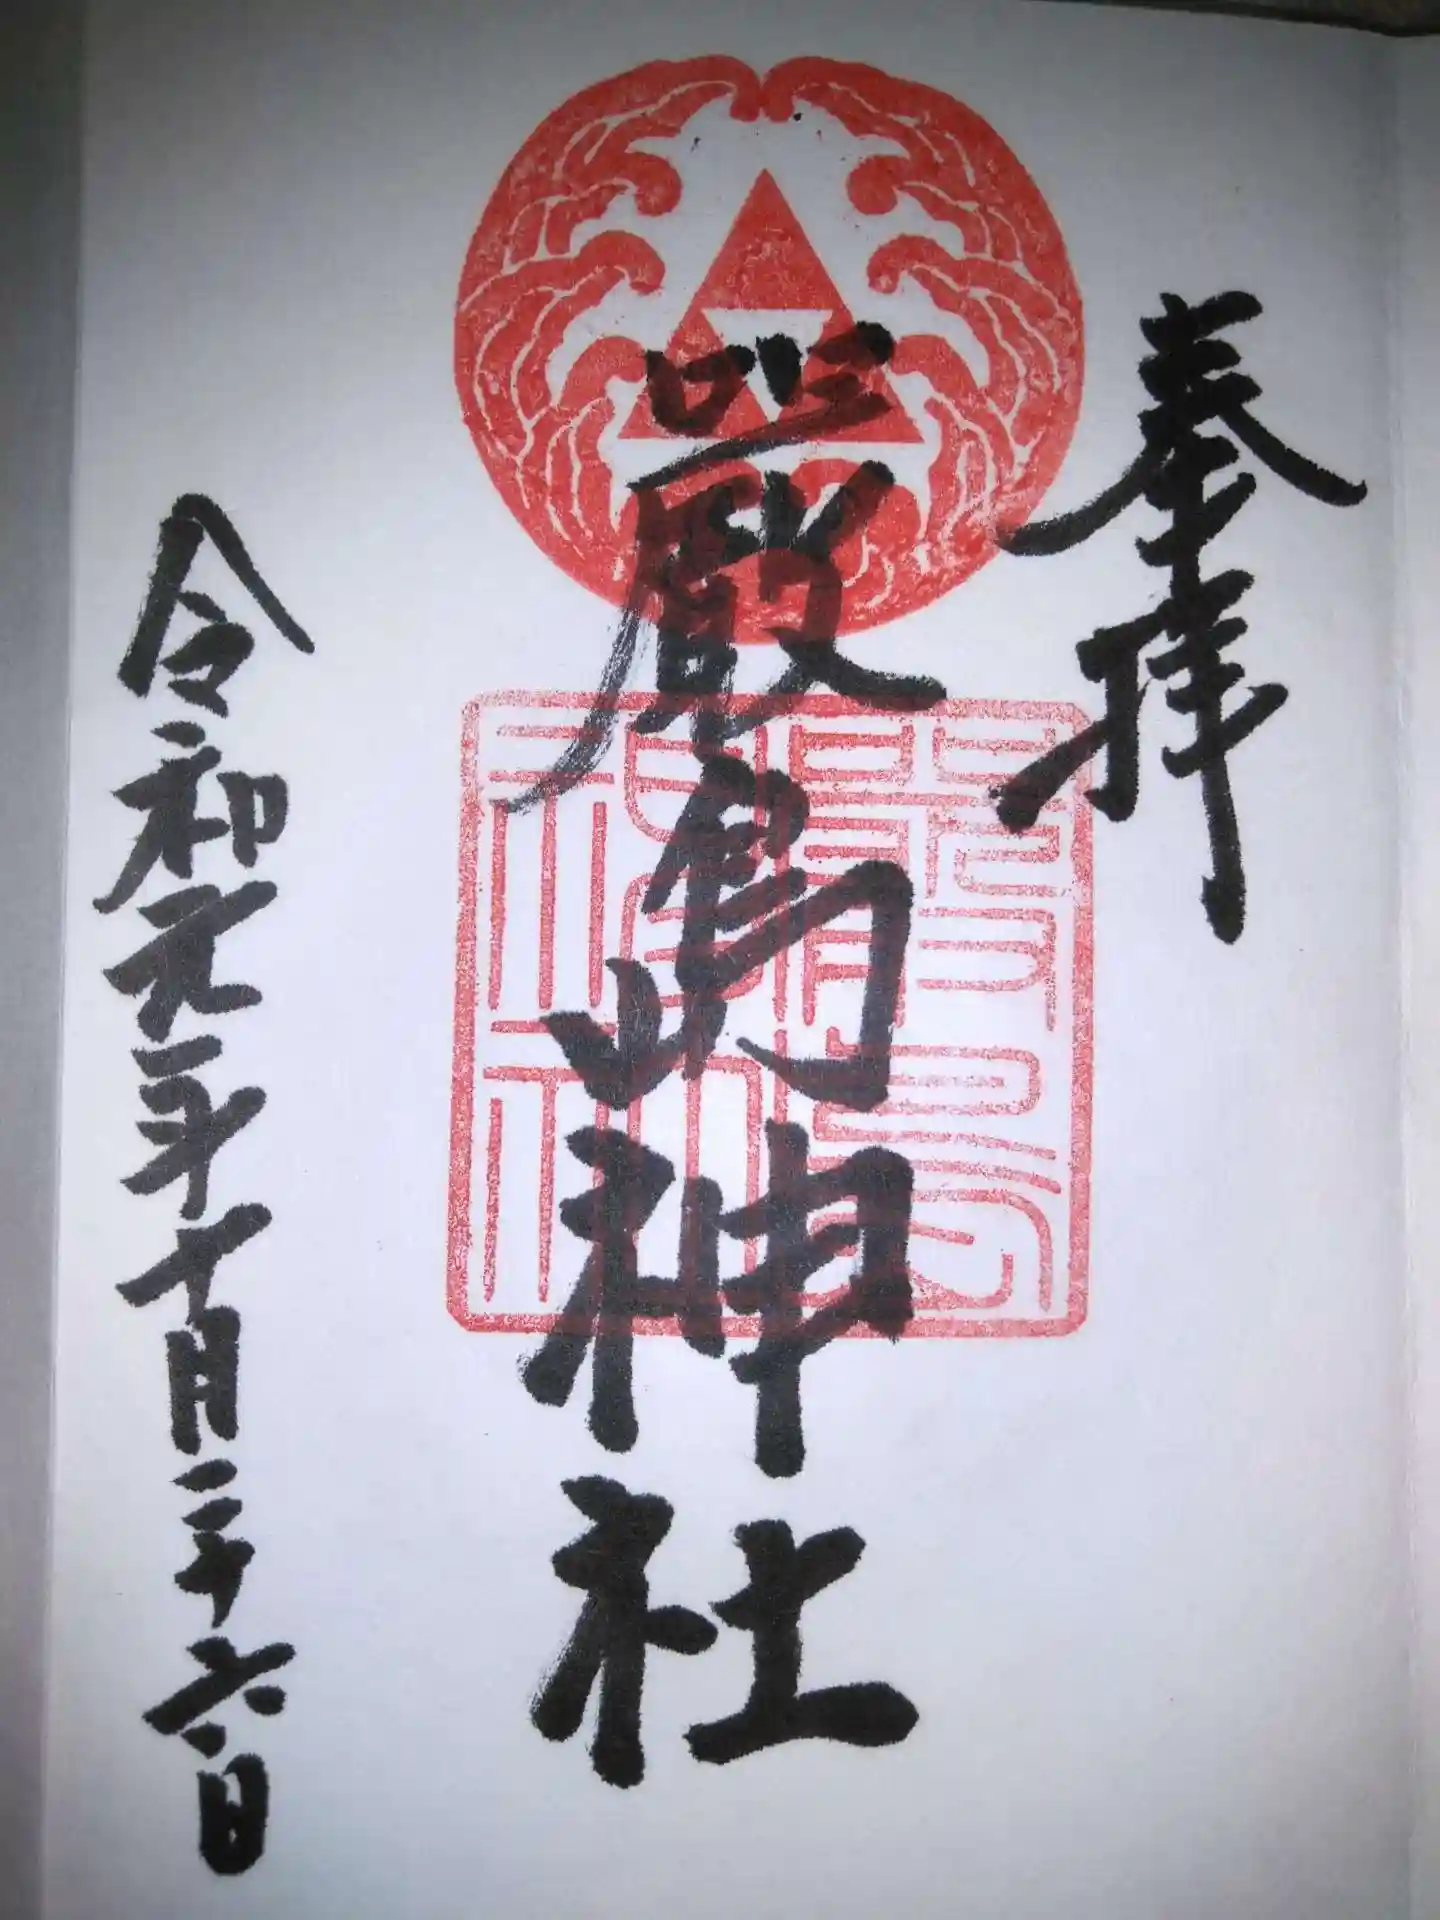 奉拝
嚴島神社
令和元年十月二十六日